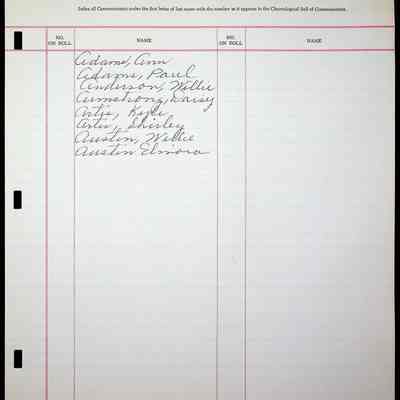 Index all Communicants under the first letter of last name with the number as it appears in the Chronological Roll of Communicants.
NO. ON ROLL NAME NO. ON ROLL NAME
Adams, Ann
Adams, Paul
Anderson, Willie
Armstrong, Daisy
Artis, Kyle
Artis, Shirley
Austin, Willie
Austin Elmora